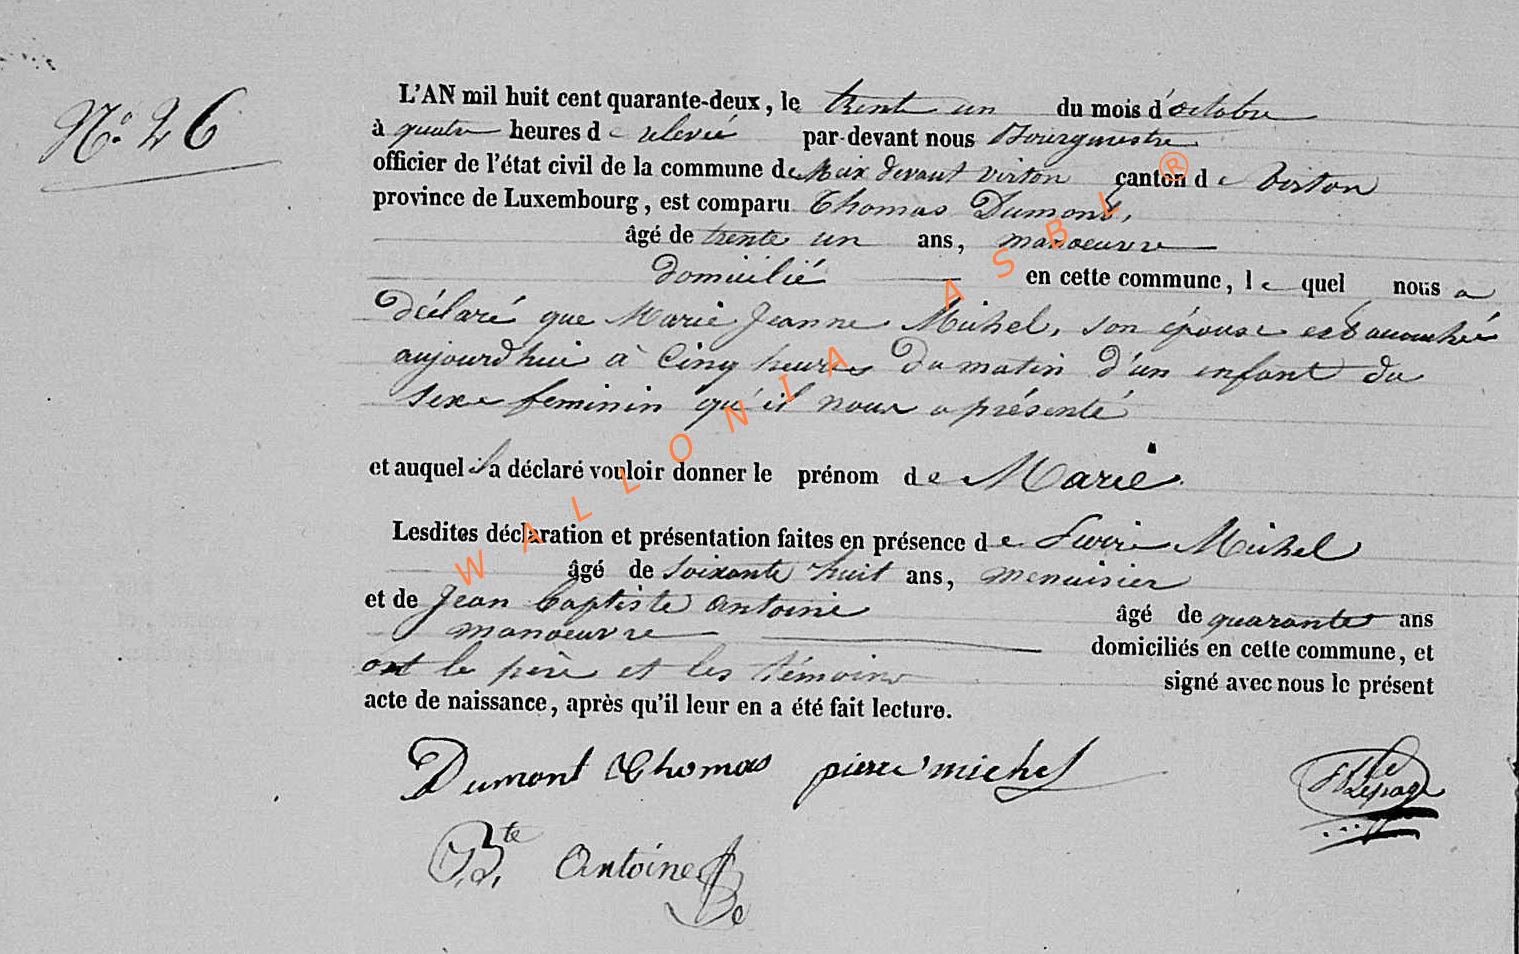 N.º 26
L'AN mil huit cent quarante-deux, le trente un du mois d'octobre
à quatre heures de relevée par-devant nous Bourgmestre
officier de l'état civil de la commune de Meix devant virton canton de Virton
province de Luxembourg, est comparu Thomas Dumont,
âgé de trente un ans, manoeuvre
domicilié en cette commune, lequel nous a
déclaré que Marie Jeanne Michel, son épouse est accouchée
aujourd'hui à Cinq heures du matin d'un enfant du
sexe feminin qu'il nous a présenté
et auquel il a déclaré vouloir donner le prénom de Marie.
Lesdites déclaration et présentation faites en présence de Pierre Michel
âgé de Soixante huit ans, menuisier
et de Jean baptiste antoine âgé de quarante ans
manoeuvre domiciliés en cette commune, et
ont le père et les témoins signé avec nous le présent
acte de naissance, après qu'il leur en a été fait lecture.
Dumont Thomas pierre michel
Lepage
J. B.te Antoine
WALLONIA ASBL ®